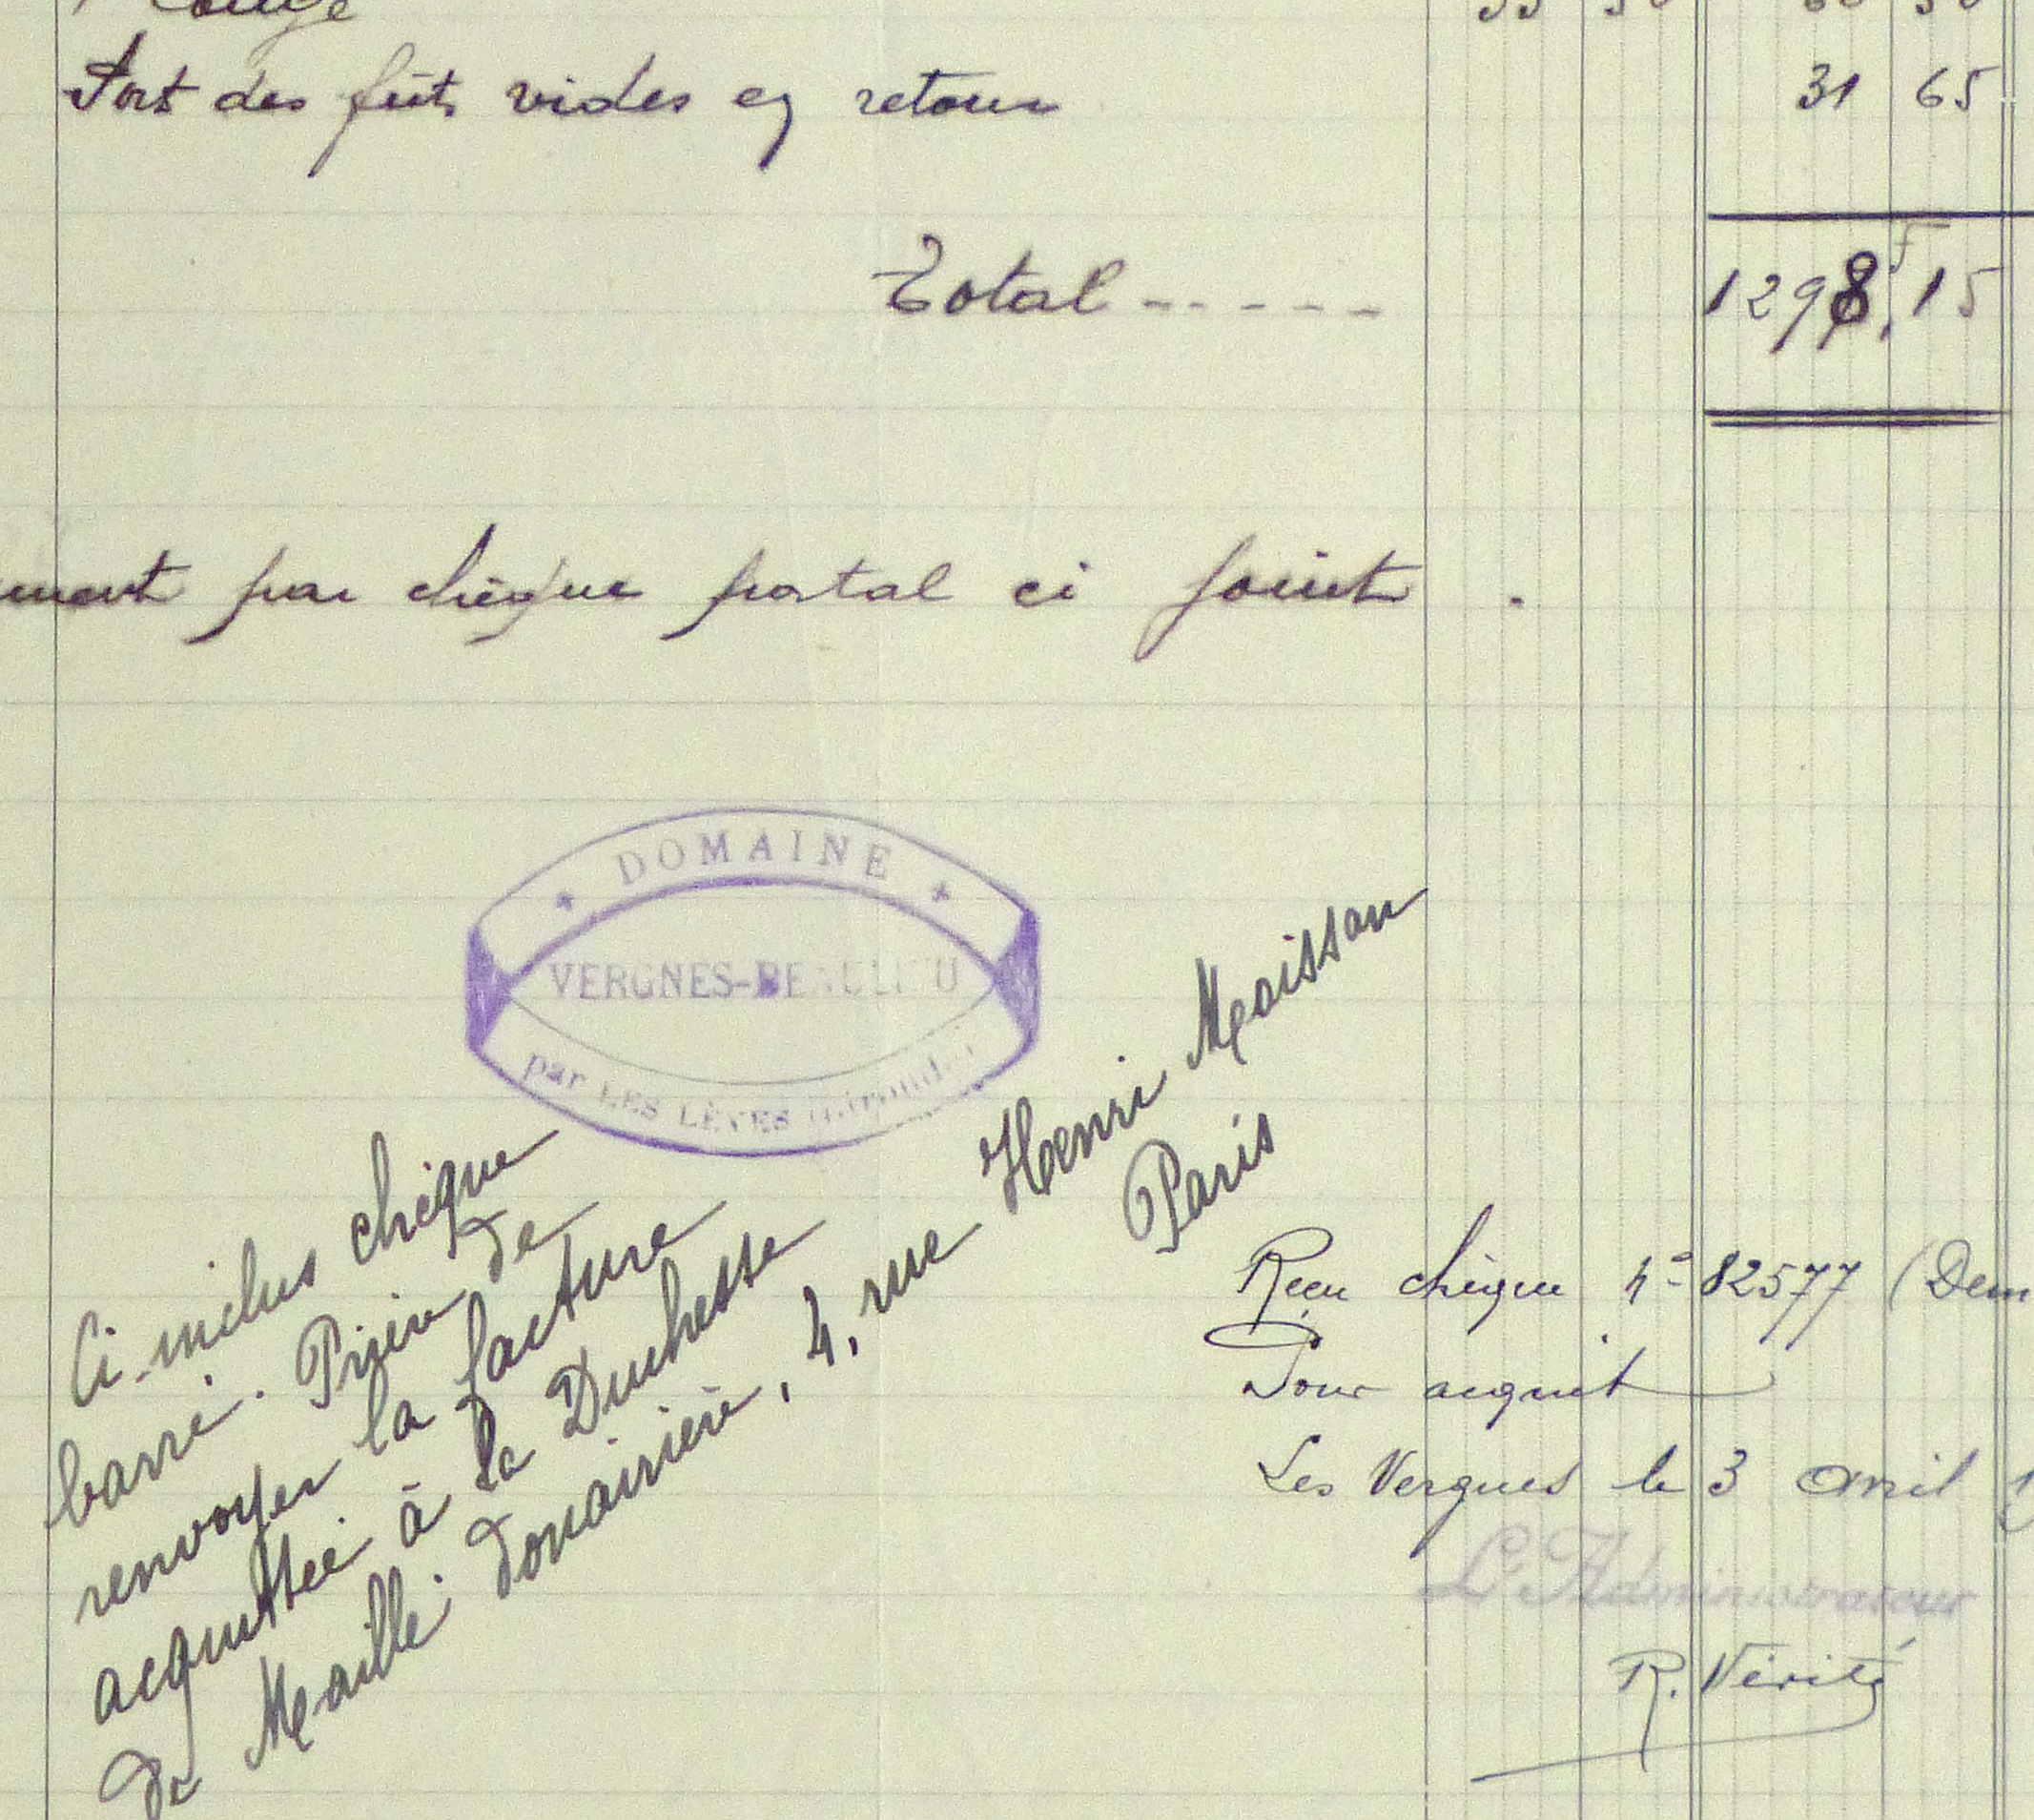 rouge
Port des fûts vides en retour 31 65
Total - - - - - 1298,F 15
par chèque postal ci joint.
DOMAINE
VERGNES-BEAULIEU
par LES LÈVES (Gironde)
Ci-inclus chèque
barré. Prière de
renvoyer la facture
acquittée à la Duchesse
de Maillé douairière, 4, rue Henri Moissan
Paris
Reçu chèque No 82577 (Dem
Pour acquit
Les Vergnes le 3 avril
L'Administrateur
R. Vérité